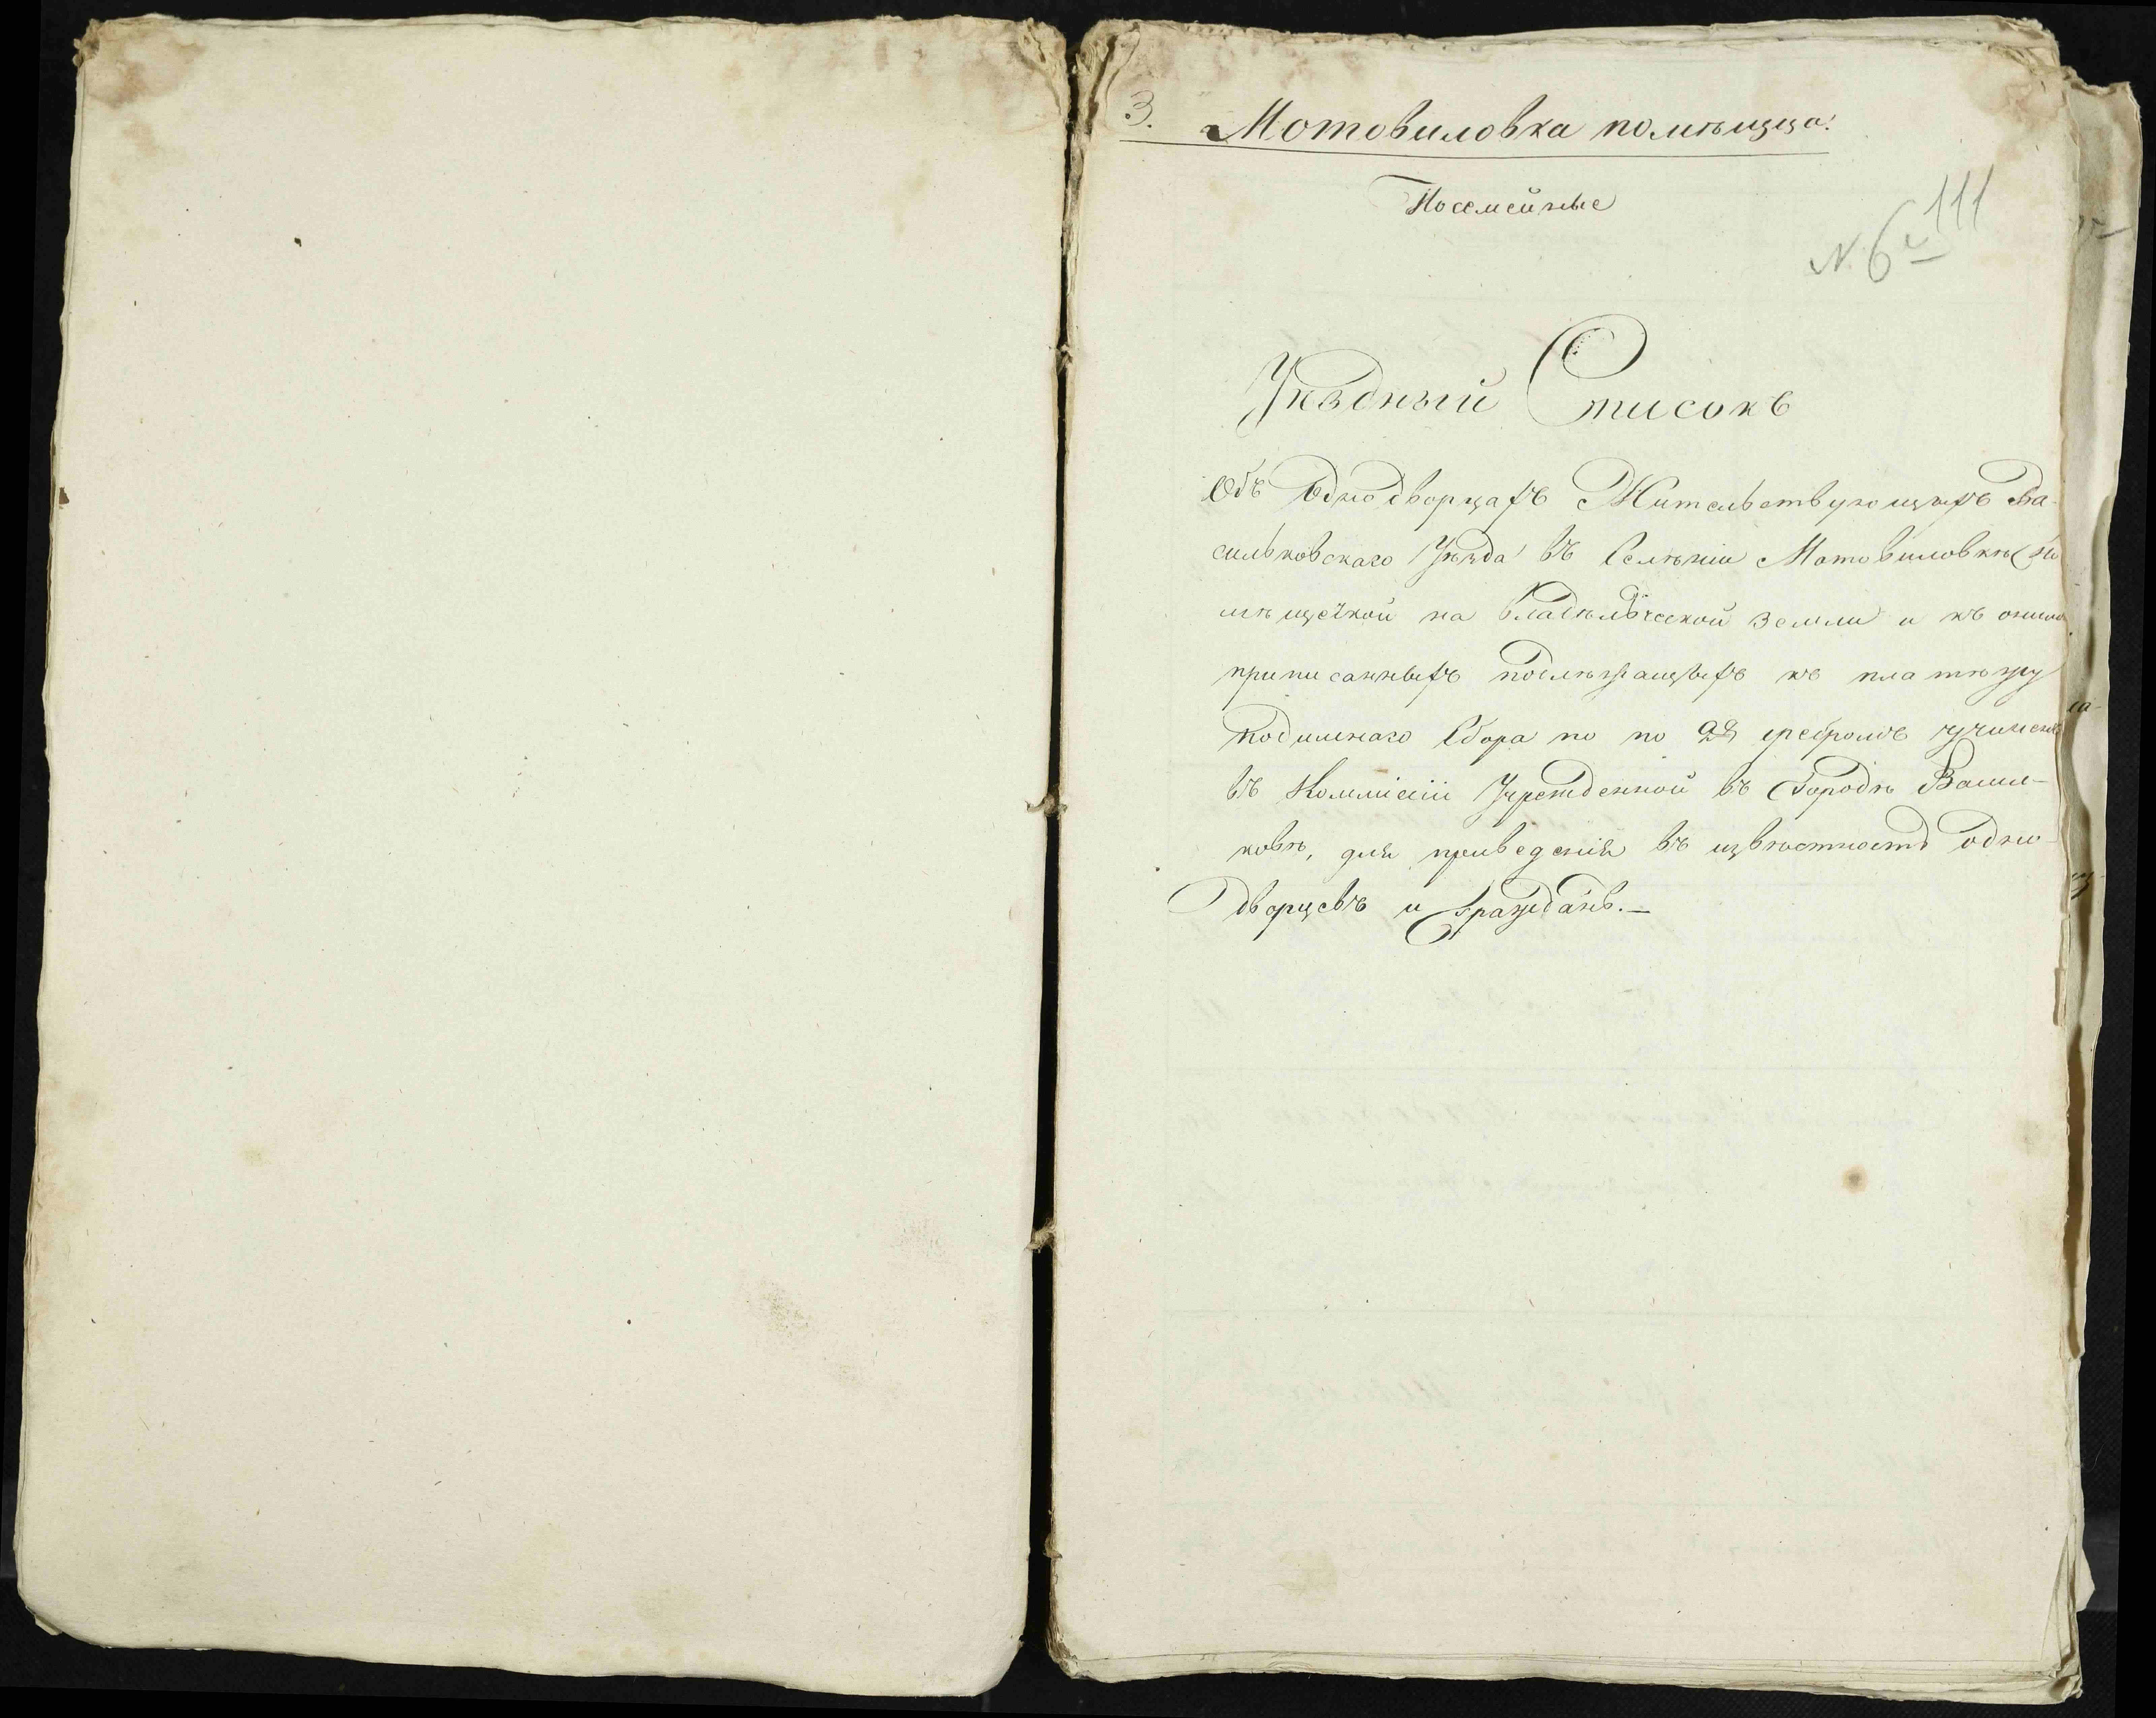 3. Мотовиловка помѣщца:
Посемейные
111
N. 6й
Уѣздный Списокъ
Объ Однодворцахъ Жительствующихъ Ва-
сильковскаго Уѣзда въ Селѣнiи Мотовиловкѣ По
мѣщечкой на Владѣльческой земли и къ оному
приписанныхъ подлѣжащихъ къ платѣжу
Подимнаго Сбора по по серебромъ учинен
въ Коммисiи Учрежденной въ Городѣ Васил-
ковѣ, для приведенiя въ извѣстность одно-
дворцевъ и Гражданъ.—